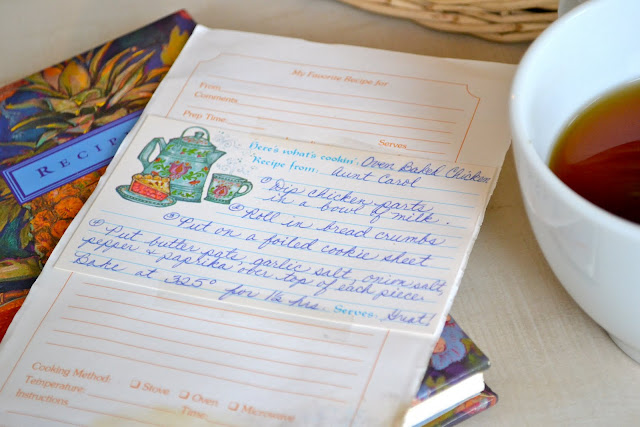 RECIP
My Favorite Recipe for
From
Comments
Prep Time
Serves
Here's what's cookin': Oven Baked Chicken
Recipe from: Aunt Carol
① Dip chicken parts
in a bowl of milk.
② Roll in bread crumbs
③ Put on a foiled cookie sheet
④ Put butter pats, garlic salt, onion salt,
pepper & paprika over top of each piece.
Bake at 325° for hrs. Serves: Great!
Cooking Method:
Stove
Oven
Microwave
Temperature:
Time:
Instructions: